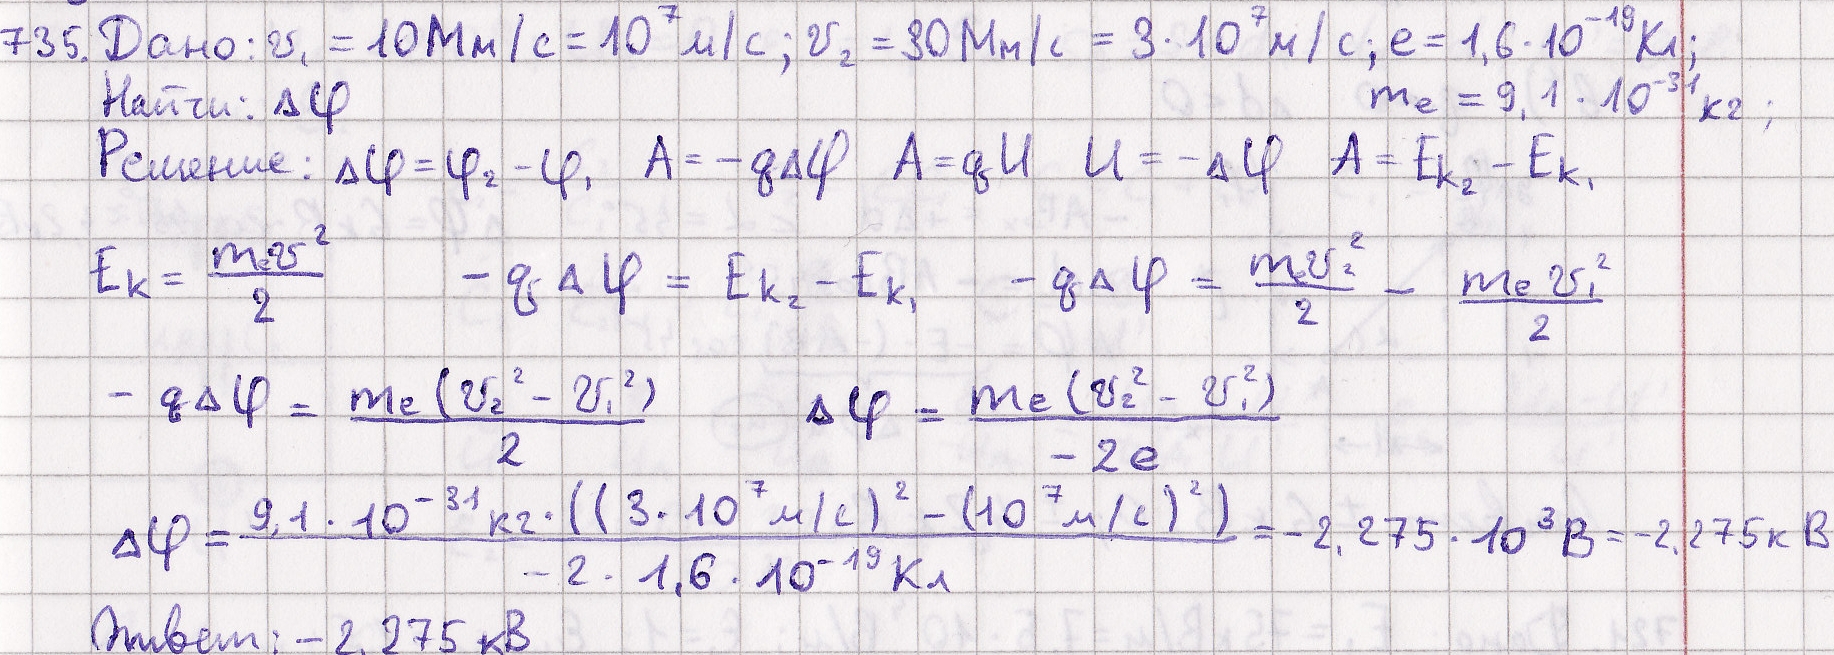 735. Дано: v₁ = 10 Мм/с = 10⁷ м/с; v₂ = 30 Мм/с = 3·10⁷ м/с; e = 1,6·10⁻¹⁹ Кл;
Найти: Δφ mₑ = 9,1·10⁻³¹ кг;
Решение: Δφ = φ₂ - φ₁ A = -qΔφ A = qU U = -Δφ A = Eк₂ - Eк₁
Eк = mₑv²/2 -qΔφ = Eк₂ - Eк₁ -qΔφ = mₑv₂²/2 - mₑv₁²/2
-qΔφ = mₑ(v₂² - v₁²)/2 Δφ = mₑ(v₂² - v₁²)/-2e
Δφ = 9,1·10⁻³¹ кг·((3·10⁷ м/с)² - (10⁷ м/с)²)/-2·1,6·10⁻¹⁹ Кл = -2,275·10³ В = -2,275 кВ
Ответ: -2,275 кВ